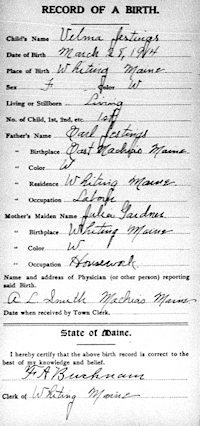 RECORD OF A BIRTH.
Child's Name Velma Jestings
Date of Birth March 28, 1914
Place of Birth Whiting Maine
Sex F Color W
Living or Stillborn Living
No. of Child, 1st, 2nd, etc. 1st
Father's Name Earl Jestings
" Birthplace East Machias Maine
" Color W
" Residence Whiting Maine
" Occupation Laborer
Mother's Maiden Name Julia Gardner
" Birthplace Whiting Maine
" Color W
" Occupation Housework
Name and address of Physician (or other person) reporting
said Birth.
A L Smith Machias Maine
Date when received by Town Clerk.
State of Maine.
I hereby certify that the above birth record is correct to the
best of my knowledge and belief.
F A Bucknam
Clerk of Whiting Maine